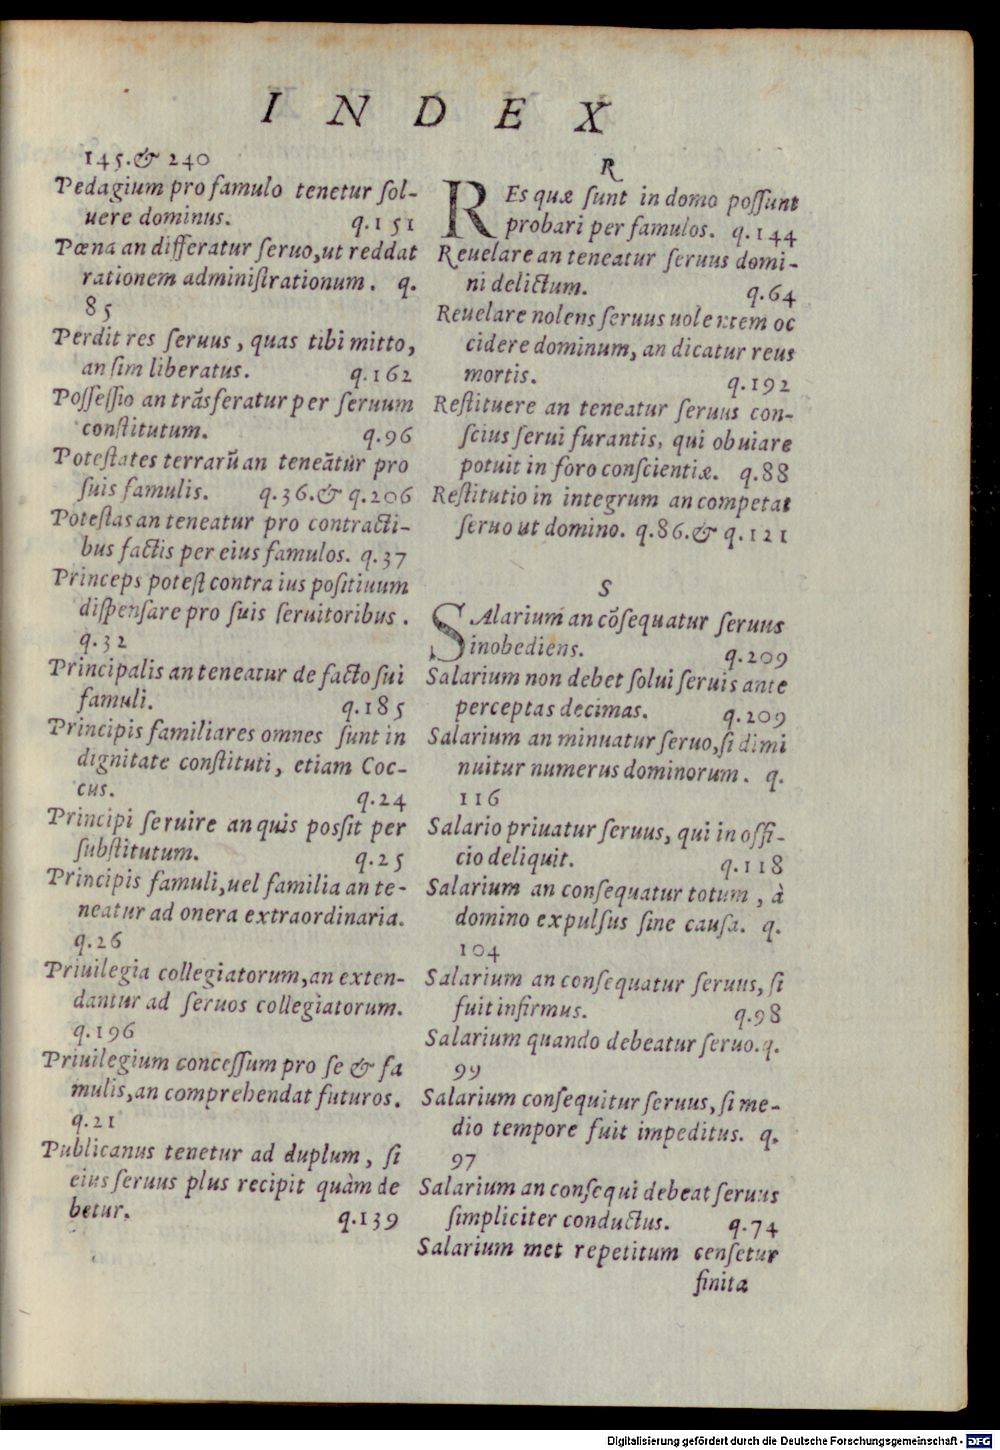 INDEX
145.& 240
Pedagium pro famulo tenetur ſol-
uere dominus. q.151
Pœna an differatur ſeruo,ut reddat
rationem adminiſtrationum. q.
85
Perdit res ſeruus, quas tibi mitto,
an ſim liberatus. q.162
Poſſeſſio an trãsferatur per ſeruum
conſtitutum. q.96
Poteſtates terrarũ an teneãtur pro
ſuis famulis. q.36.& q.206
Poteſtas an teneatur pro contracti-
bus factis per eius famulos. q.37
Princeps poteſt contra ius poſitiuum
diſpenſare pro ſuis ſeruitoribus.
q.32
Principalis an teneatur de facto ſui
famuli. q.185
Principis familiares omnes ſunt in
dignitate conſtituti, etiam Coc-
cus. q.24
Principi ſeruire an quis poſſit per
ſubſtitutum. q.25
Principis famuli,uel familia an te-
neatur ad onera extraordinaria.
q.26
Priuilegia collegiatorum,an exten-
dantur ad ſeruos collegiatorum.
q.196
Priuilegium conceſſum pro ſe & fa
mulis,an comprehendat futuros.
q.21
Publicanus tenetur ad duplum, ſi
eius ſeruus plus recipit quàm de
betur. q.139
R
REs quæ ſunt in domo poſſunt
probari per famulos. q.144
Reuelare an teneatur ſeruus domi-
ni delictum. q.64
Reuelare nolens ſeruus uolentem oc
cidere dominum, an dicatur reus
mortis. q.192
Reſtituere an teneatur ſeruus con-
ſcius ſerui furantis, qui obuiare
potuit in foro conſcientiæ. q.88
Reſtitutio in integrum an competat
ſeruo ut domino. q.86.& q.121
S
SAlarium an cõſequatur ſeruus
inobediens. q.209
Salarium non debet ſolui ſeruis ante
perceptas decimas. q.209
Salarium an minuatur ſeruo,ſi dimi
nuitur numerus dominorum. q.
116
Salario priuatur ſeruus, qui in offi-
cio deliquit. q.118
Salarium an conſequatur totum, à
domino expulſus ſine cauſa. q.
104
Salarium an conſequatur ſeruus, ſi
fuit infirmus. q.98
Salarium quando debeatur ſeruo.q.
99
Salarium conſequitur ſeruus, ſi me-
dio tempore fuit impeditus. q.
97
Salarium an conſequi debeat ſeruus
ſimpliciter conductus. q.74
Salarium met repetitum cenſetur
finita
Digitalisierung gefördert durch die Deutsche Forschungsgemeinschaft - DFG